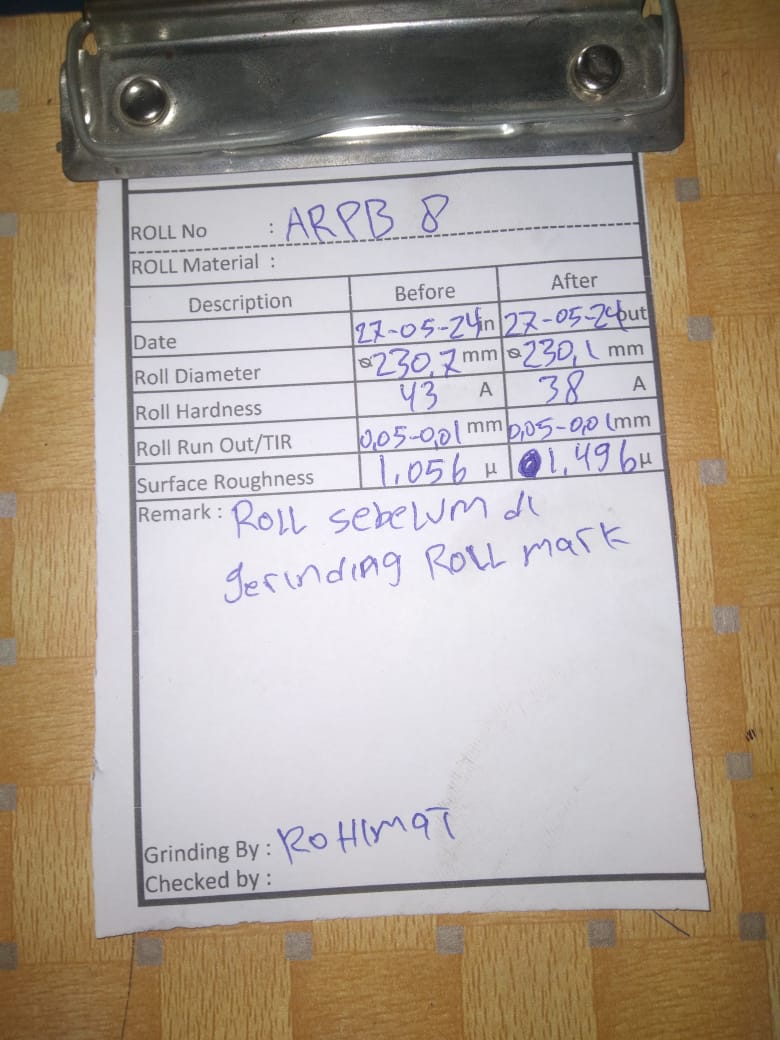 ROLL No : ARPB 8
ROLL Material :
Description Before After
Date 27-05-24 in 27-05-24 out
Roll Diameter ø230,7 mm ø230,1 mm
Roll Hardness 43 A 38 A
Roll Run Out/TIR 0,05-0,01 mm 0,05-0,01 mm
Surface Roughness 1.056 µ 1.496 µ
Remark : Roll sebelum di
gerinding Roll mark
Grinding By : ROHIMAT
Checked by :